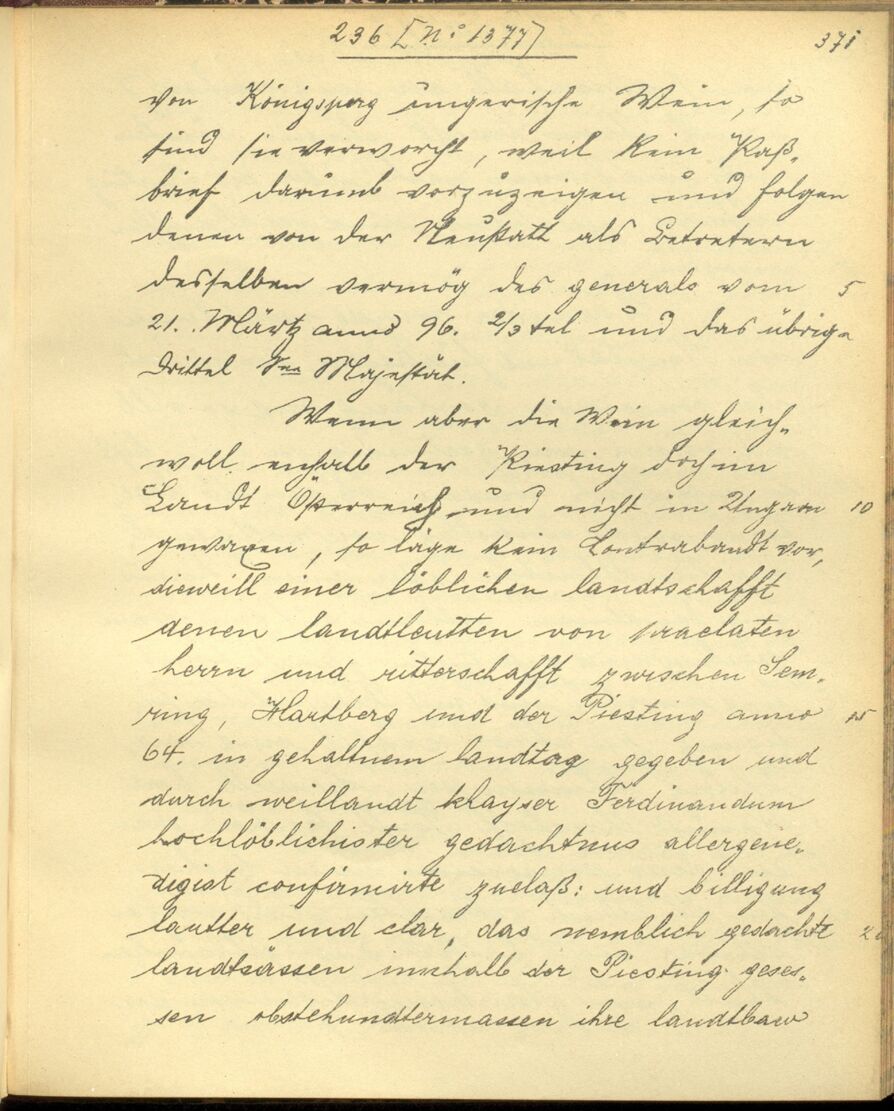 236 [N: 1377]
371
von Königsperg ungerische Wein, so
sind sie verworcht, weil kein Paß-
brief darumb vorzuzeigen und folgen
denen von der Neustatt als Betretern
desselben vermög des generals vom 5
21. Märtz anno 96. 2/3 tel und das übrige
Drittel Sr Majestät.
Wenn aber die Wein gleich-
woll enhalb der Piesting doch im
Landt Österreich und nicht in Ungarn 10
gewaxen, so läge kein Contrabandt vor,
dieweill einer löblichen landtschafft
denen landtleutten von praelaten
herrn und ritterschafft zwischen Sem-
ring, Hartberg und der Piesting anno 15
64. in gehaltnem landtag gegeben und
durch weillandt khayser Ferdinandum
hochlöblichister gedachtnus allergene-
digist confirmirte zuelaß: und billigung
lautter und clar, das nemblich gedachte 20
landtsässen innhalb der Piesting geses-
sen obstehundtermassen ihre landtbaw